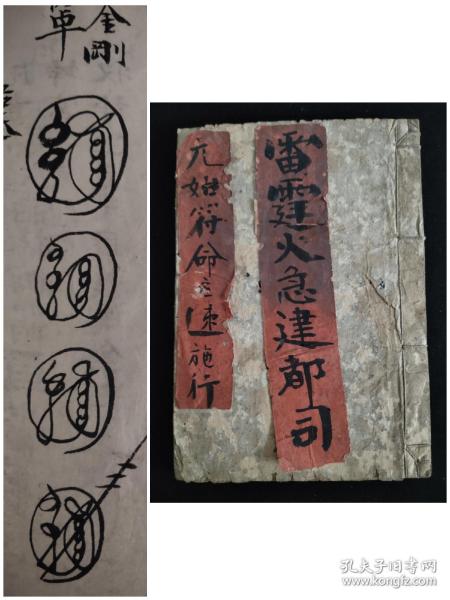 金剛
軍
雷霆火急建都司
元始符命立速施行
孔夫子旧书网
www.kongfz.com